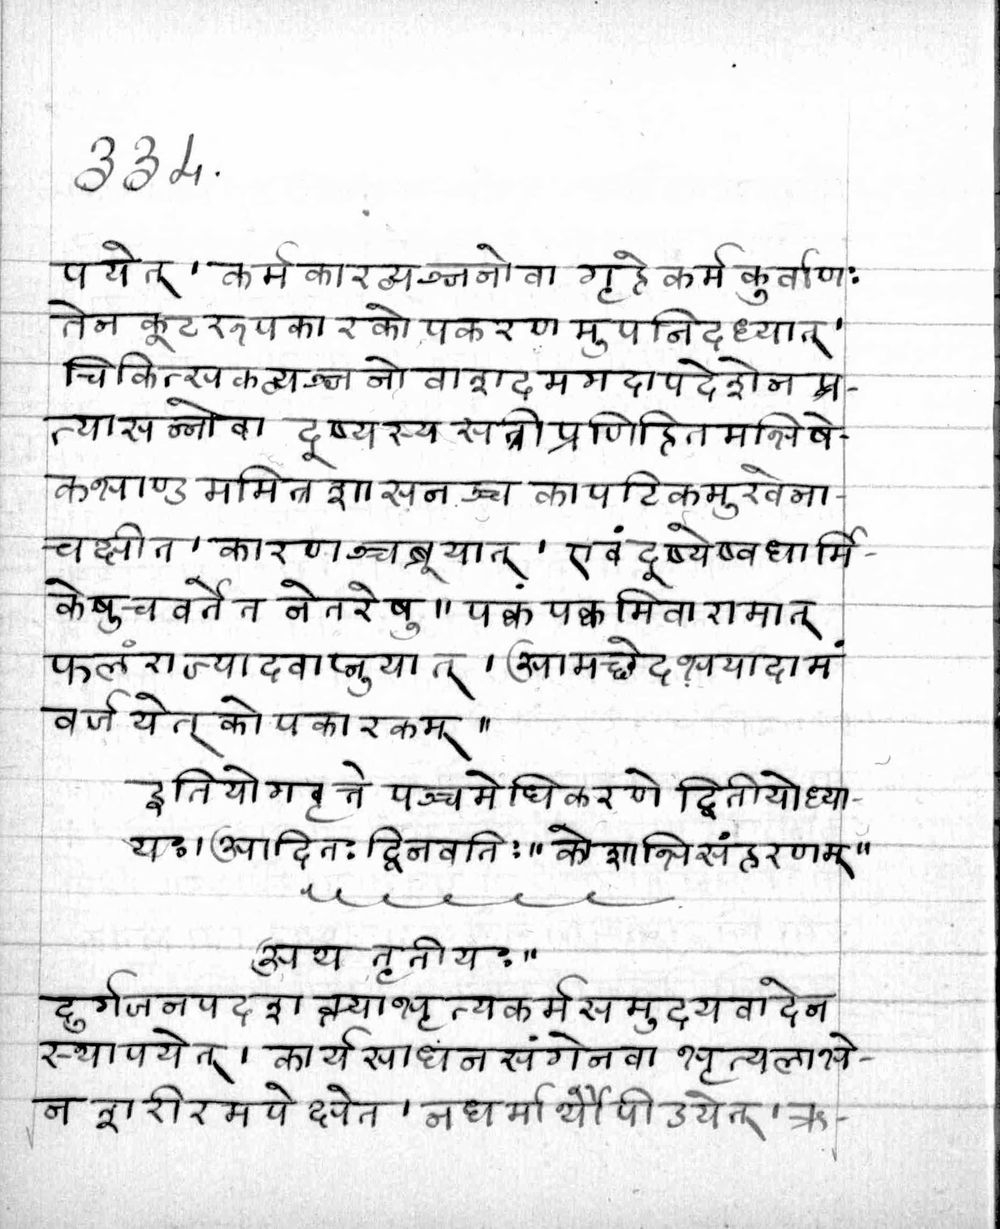 334.
पयेत् । कर्मकारव्यञ्जनो वा गृहे कर्म कुर्वाणः
तेन कूटरूपकारकोपकरणमुपनिदध्यात् ।
चिकित्सकव्यञ्जनो वा गदमगदापदेशेन प्र-
त्यासन्नो वा दूष्यस्य सत्री प्रणिहितमभिषे-
कभाण्डममित्रशासनञ्च कापटिकमुखेना-
चक्षीत । कारणञ्च ब्रूयात् । एवं दूष्येष्वधार्मि-
केषु च वर्तेत नेतरेषु ॥ पक्वं पक्वमिवारामात्
फलं राज्यादवाप्नुयात् । आमच्छेदभयादामं
वर्जयेत् कोपकारकम् ॥
इति योगवृत्ते पञ्चमेधिकरणे द्वितीयोध्या-
यः। आदितः द्विनवतिः ॥ कोशाभिसंहरणम् ॥
अथ तृतीयः ॥
दुर्गजनपदशक्त्या भृत्यकर्म समुदयवादेन
स्थापयेत् । कार्यसाधनसंगेन वा भृत्यलाभे-
न शरीरमपेक्षेत । न धर्मार्थौ पीडयेत् । ऋ-